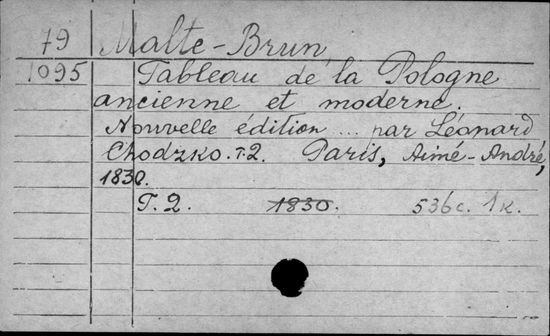 79 Malte-Brun
1095 Tableau de la Pologne
ancienne et moderne.
Nouvelle édition ... par Léonard
Chodzko. T.2. Paris, Aimé-André,
1830.
T. 2. 1830. 536 c. 1 к.